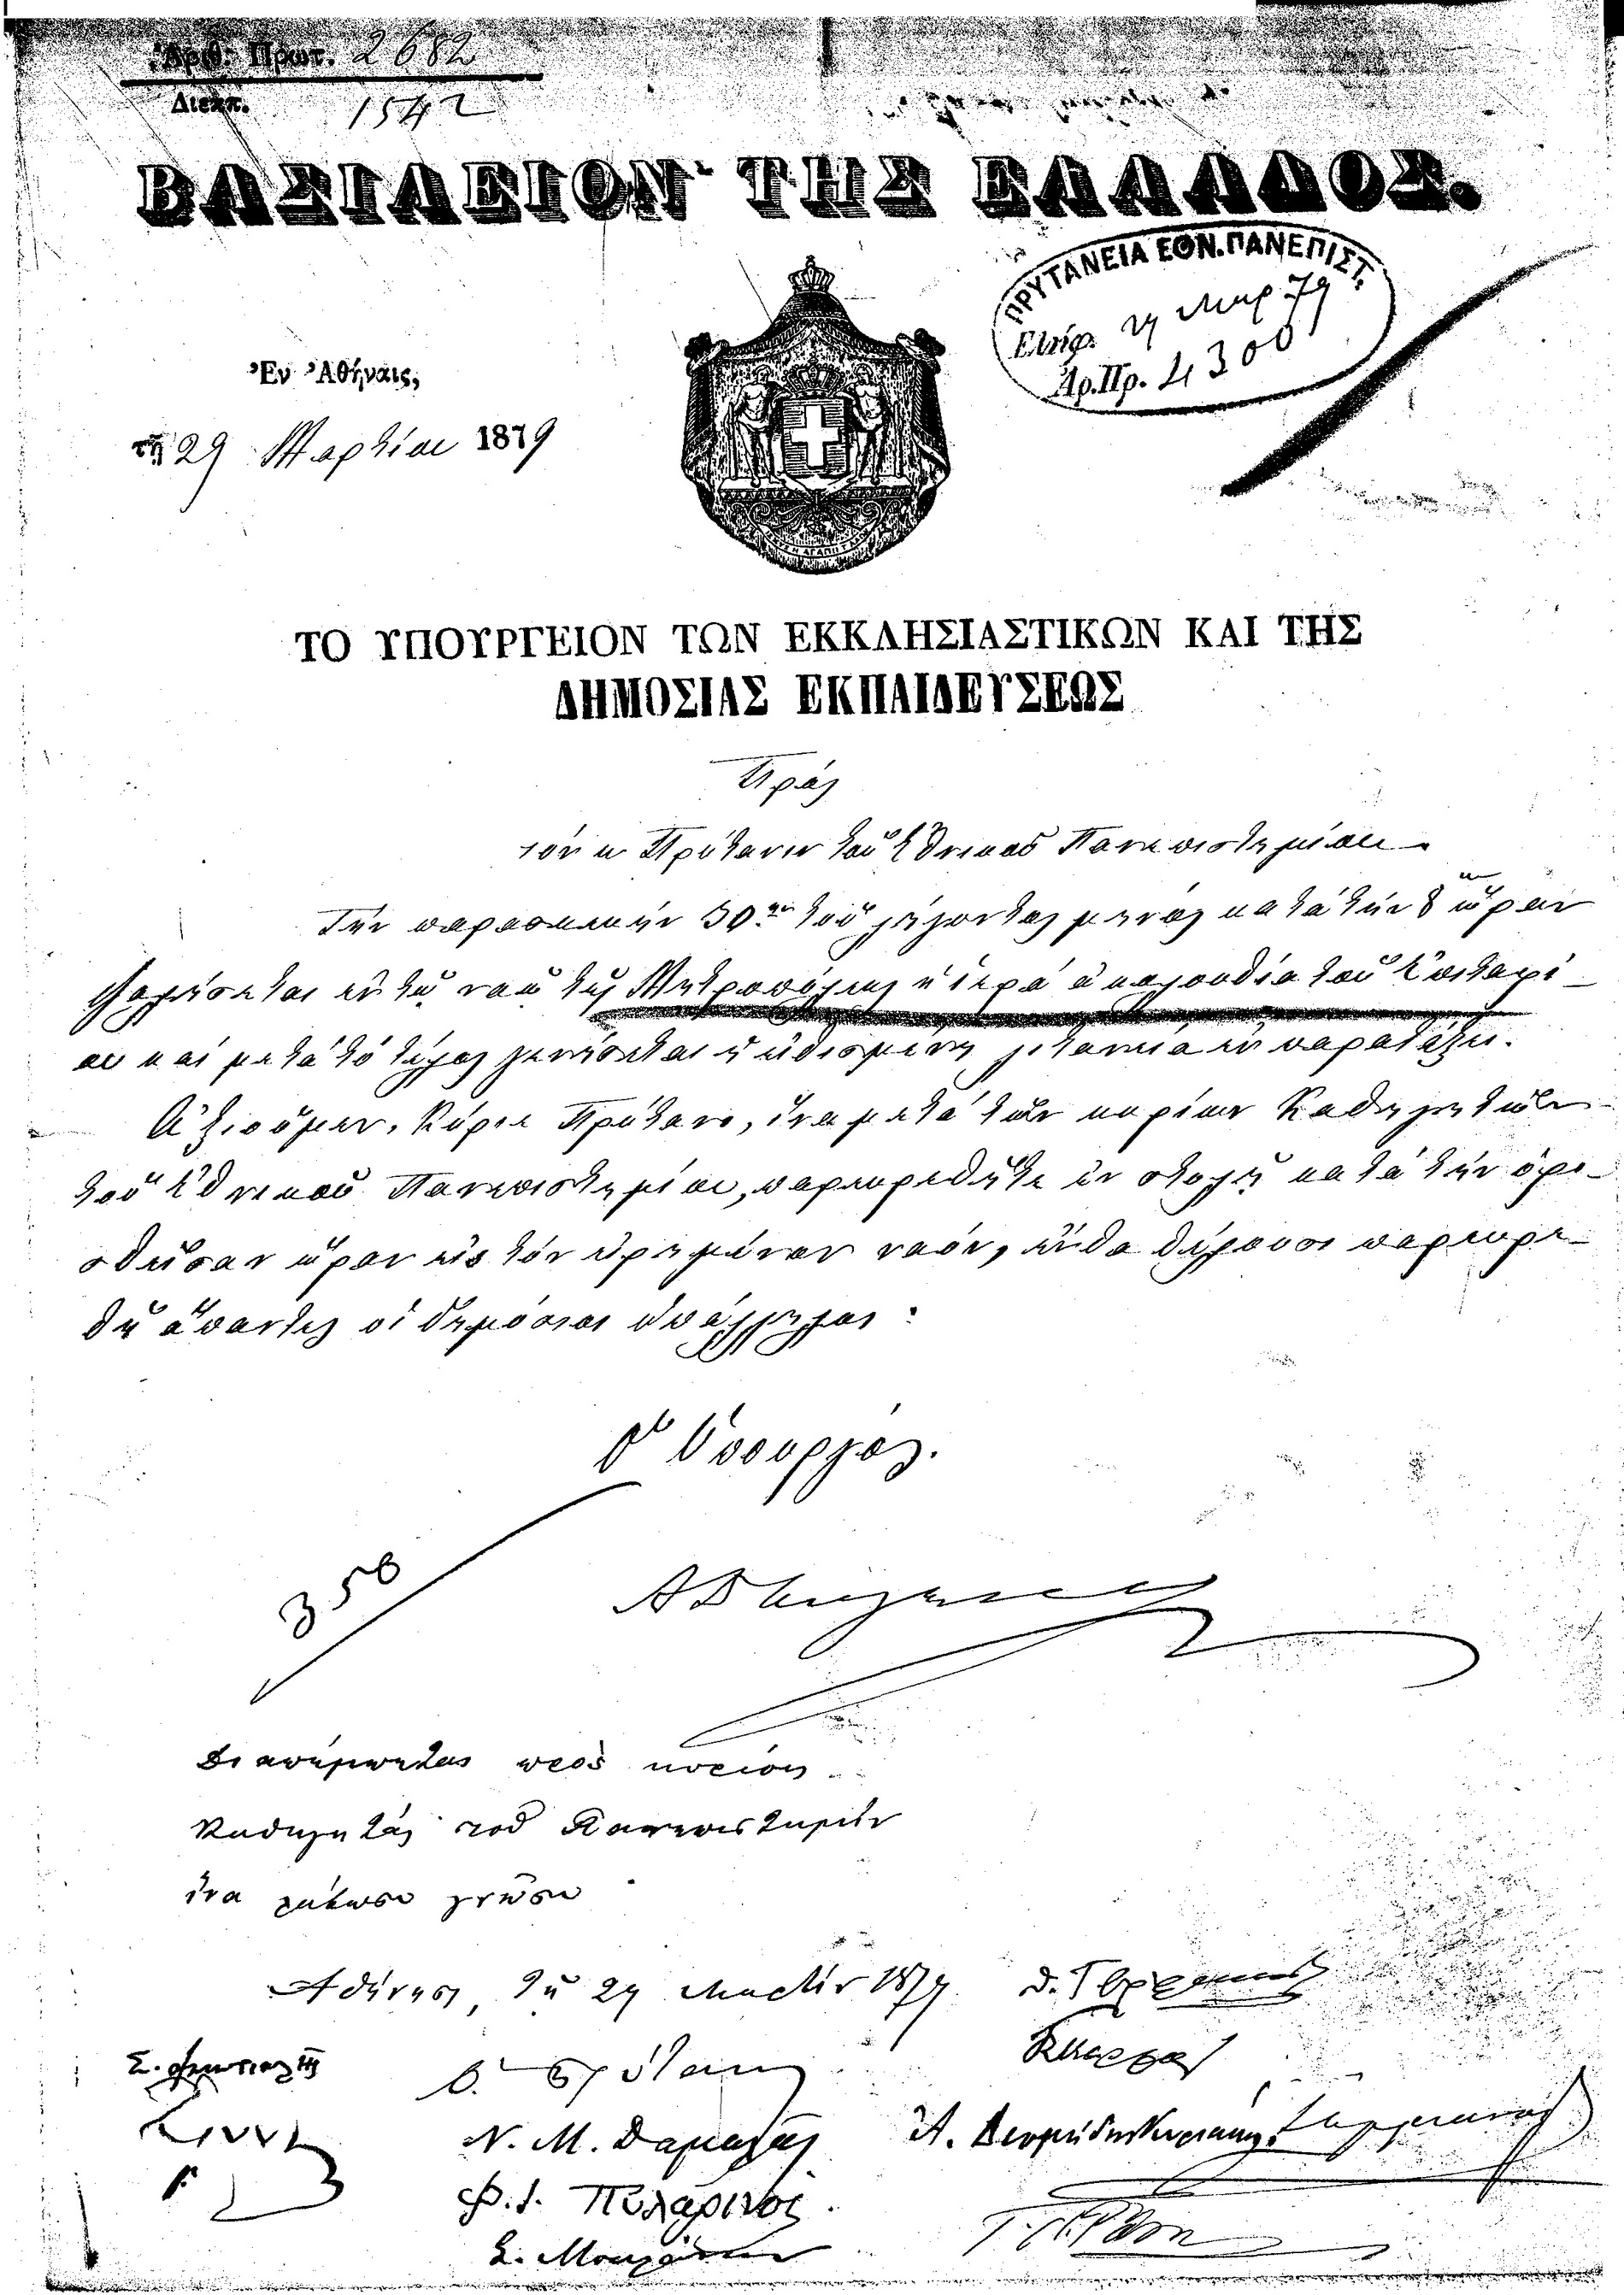 Ἀριθ. Πρωτ. 2682
Διεκπ. 1542
ΒΑΣΙΛΕΙΟΝ ΤΗΣ ΕΛΛΑΔΟΣ.
ΠΡΥΤΑΝΕΙΑ ΕΘΝ. ΠΑΝΕΠΙΣΤ.
Ελήφ. 29 Μαρ. 79
Ἀρ. Πρ. 4300
Ἐν Ἀθήναις,
τῇ 29 Μαρτίου 1879
ΤΟ ΥΠΟΥΡΓΕΙΟΝ ΤΩΝ ΕΚΚΛΗΣΙΑΣΤΙΚΩΝ ΚΑΙ ΤΗΣ
ΔΗΜΟΣΙΑΣ ΕΚΠΑΙΔΕΥΣΕΩΣ
Πρὸς
τὸν κ Πρύτανιν τοῦ Ἐθνικοῦ Πανεπιστημίου
Τὴν παρασκευὴν 30ην τοῦ λήγοντος μηνὸς κατὰ τὴν 8 ὥραν
ψαλήσεται ἐν τῷ ναῷ τῆς Μητροπόλεως ἡ ἱερὰ ἀκολουθία τοῦ Ἐπιταφί-
ου καὶ μετὰ τὸ τέλος γενήσεται ἡ εἰθισμένη λιτανεία ἐν παρατάξει.
Ἀξιοῦμεν, Κύριε Πρύτανι, ἵνα μετὰ τῶν κυρίων Καθηγητῶν
τοῦ Ἐθνικοῦ Πανεπιστημίου, παρευρεθῆτε ἐν στολῇ κατὰ τὴν ὁρι-
σθεῖσαν ὥραν εἰς τὸν εἰρημένον ναόν, ἔνθα θέλουσι παρευρε-
θῆ ἅπαντες οἱ δημόσιοι ὑπάλληλοι.
Ὁ Ὑπουργός.
350
Διαπέμπεται πρὸς κυρίους
Καθηγητὰς τοῦ Πανεπιστημίου
ἵνα λάβωσι γνῶσιν
Ἀθήνησι, τῇ 29 Μαρτίου 1879
Ὁ Πρύτανις
Ν. Μ. Δαμαλᾶς
Ἀ. Διομήδης Κυριακός